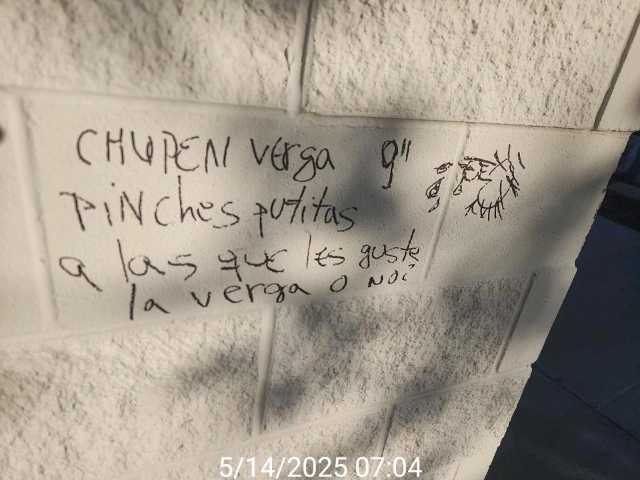 CHUPEN verga 9"
PiNches putitas
a las que les guste
la verga o no
5/14/2025 07:04